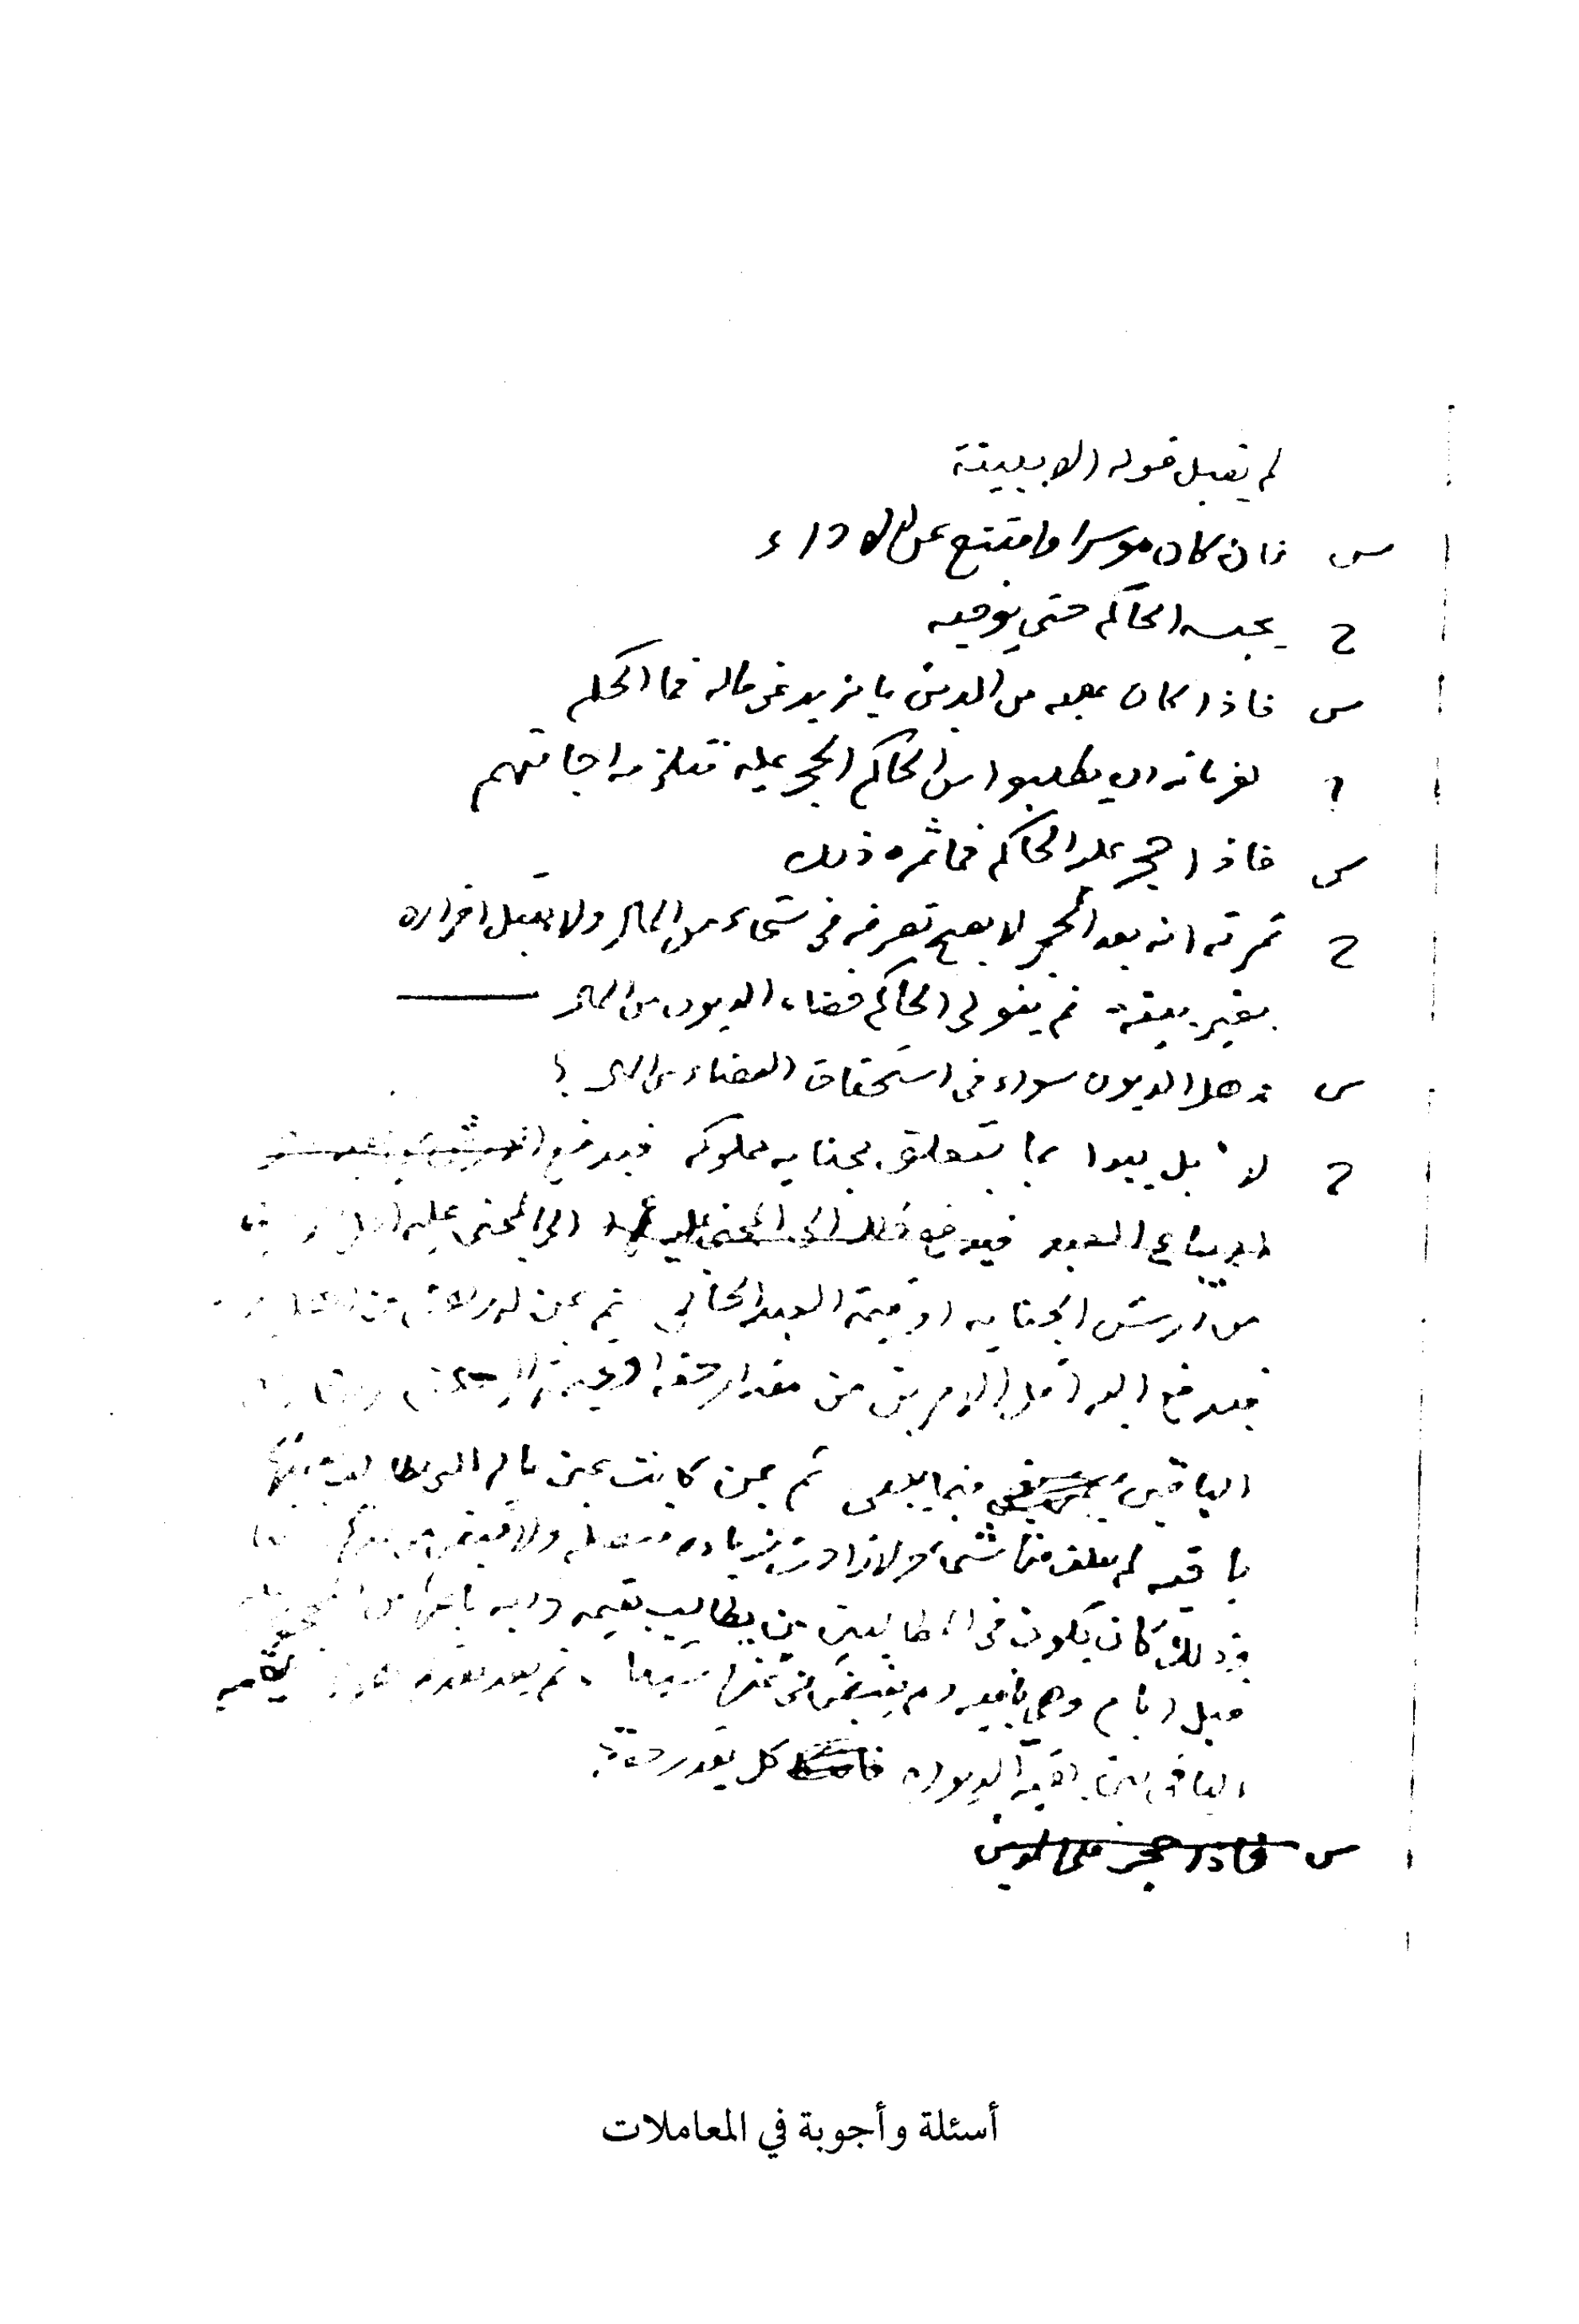 لم يقبل قوله الا ببينة
س فان كان موسرا وامتنع عن الاداء
ج يحبسه الحاكم حتى يوفيه
س فاذا كان عليه من الدين ما يزيد عن ماله فما الحكم
ج لغرمائه ان يطلبوا من الحاكم الحجر عليه فتلزمه اجابتهم
س فاذا حجر عليه الحاكم فما ثمرة ذلك
ج ثمرته انه بعد الحجر لا يصح تصرفه في شيء من المال ولا يقبل اقراره
بغير بينة ثم يتولى الحاكم قضاء الديون من المال
س هل الديون سواء في استحقاق القضاء من المال ؟
ج لا بل يبدا بما يتعلق بجناية مملوكه فيدفع
العبد فيدفع الى المجني عليه
من ارش الجناية او قيمة العبد الجاني ثم بمن له رهن
فيدفع اليه اقل الامرين من مقدار حقه او قيمة الرهن
الباقين فيما بقي ثم بمن كانت عين ماله التي يطالب
باقية لم يتلف منها شيء ولا زادت زيادة متصلة ولا قبض من
وذلك كان يكون في المطالبين من يطالب بقيمة دابة باعها من
قبل ايام وهي باقية ولم يقبض من ثمنها شيئا ثم بعد هذا
الباقي بين بقية الديون كل بقدر دينه
س فاذا حجر على المدين
أسئلة وأجوبة في المعاملات